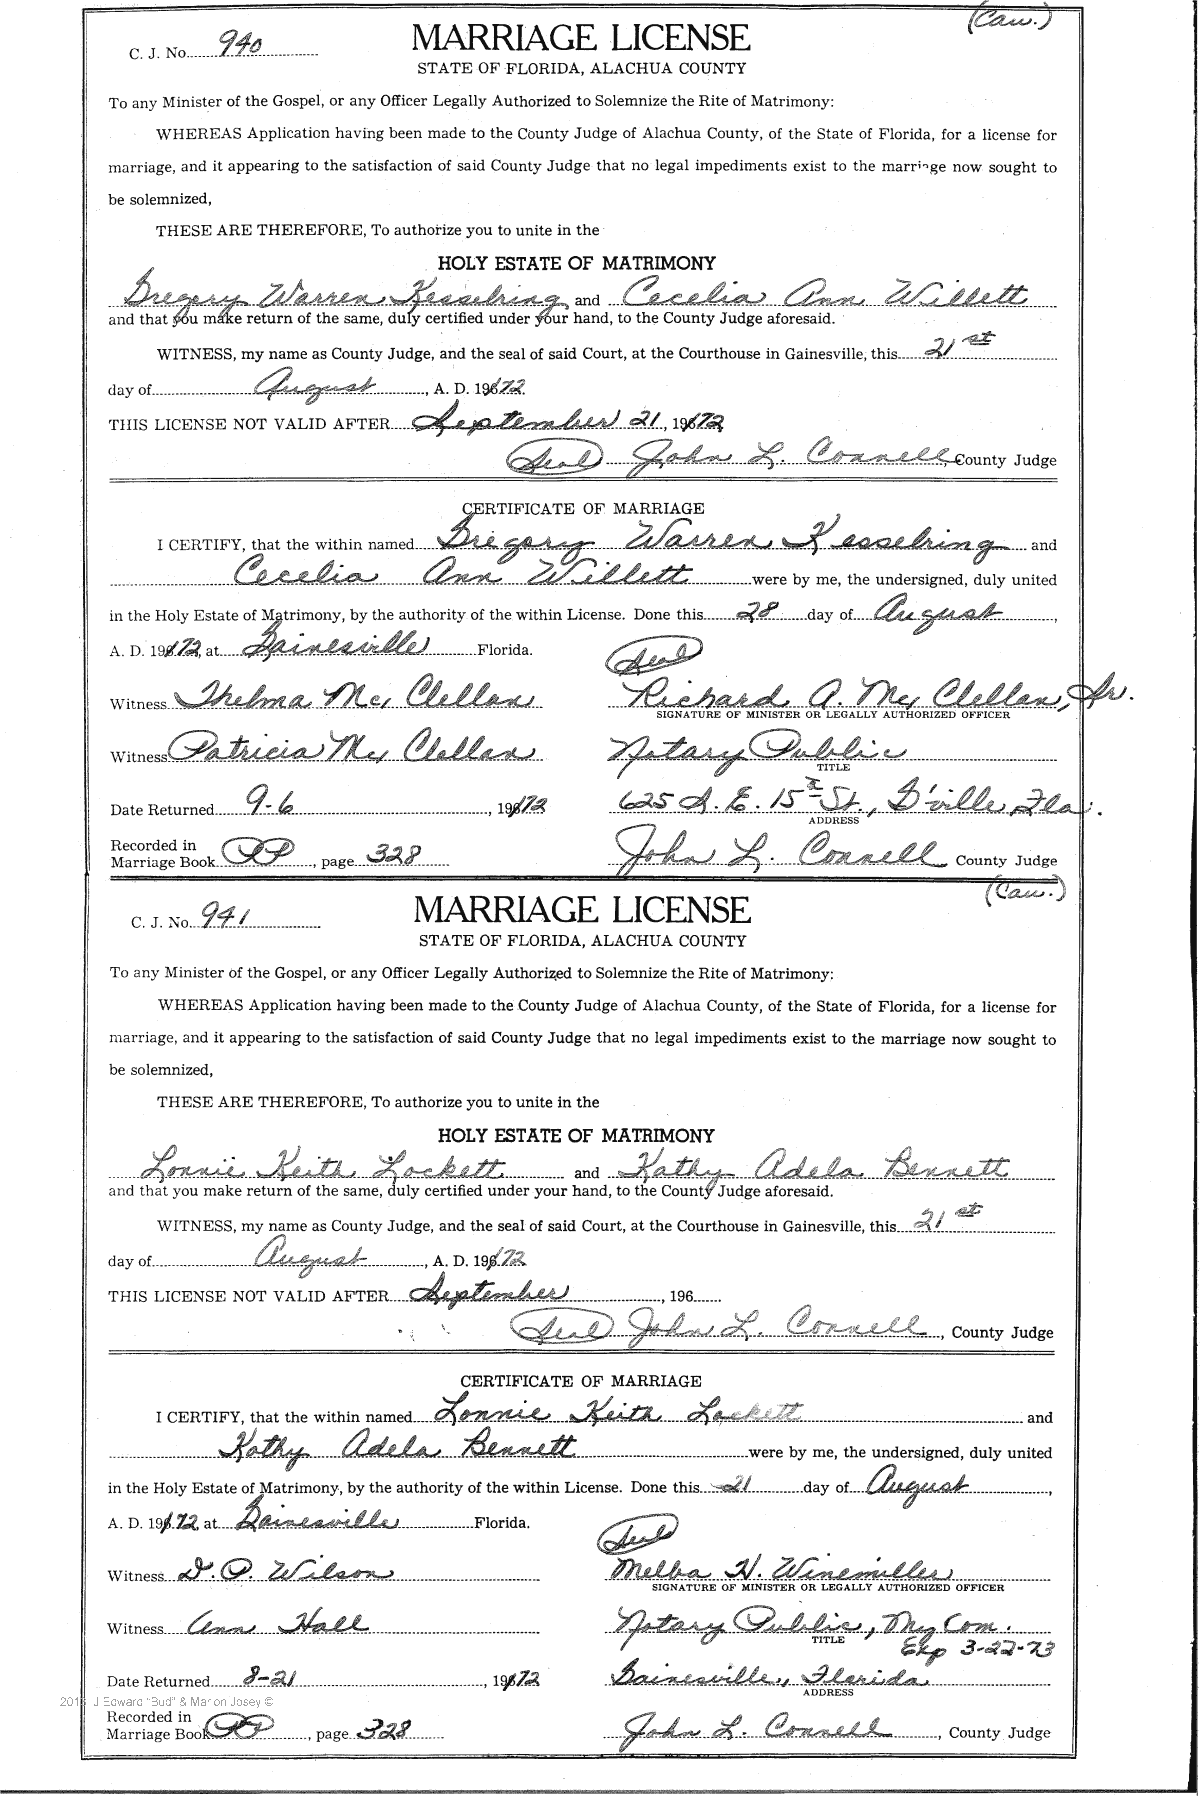 (Cau.)
C. J. No. 940
MARRIAGE LICENSE
STATE OF FLORIDA, ALACHUA COUNTY
To any Minister of the Gospel, or any Officer Legally Authorized to Solemnize the Rite of Matrimony:
WHEREAS Application having been made to the County Judge of Alachua County, of the State of Florida, for a license for
marriage, and it appearing to the satisfaction of said County Judge that no legal impediments exist to the marriage now sought to
be solemnized,
THESE ARE THEREFORE, To authorize you to unite in the
HOLY ESTATE OF MATRIMONY
Gregory Warren Kesselring and Cecelia Ann Willett
and that you make return of the same, duly certified under your hand, to the County Judge aforesaid.
WITNESS, my name as County Judge, and the seal of said Court, at the Courthouse in Gainesville, this 21st
day of August, A. D. 1972
THIS LICENSE NOT VALID AFTER September 21, 1972
(Seal) John L. Connell, County Judge
CERTIFICATE OF MARRIAGE
I CERTIFY, that the within named Gregory Warren Kesselring and
Cecelia Ann Willett were by me, the undersigned, duly united
in the Holy Estate of Matrimony, by the authority of the within License. Done this 28 day of August,
A. D. 1972, at Gainesville Florida. (Seal)
Witness Thelma McClellan Richard A. McClellan, Sr.
SIGNATURE OF MINISTER OR LEGALLY AUTHORIZED OFFICER
Witness Patricia McClellan Notary Public
TITLE
Date Returned 9-6, 1972 625 S. E. 15th St., G'ville, Fla.
ADDRESS
Recorded in
Marriage Book PP, page 328 John L. Connell County Judge
(Cau.)
C. J. No. 941
MARRIAGE LICENSE
STATE OF FLORIDA, ALACHUA COUNTY
To any Minister of the Gospel, or any Officer Legally Authorized to Solemnize the Rite of Matrimony:
WHEREAS Application having been made to the County Judge of Alachua County, of the State of Florida, for a license for
marriage, and it appearing to the satisfaction of said County Judge that no legal impediments exist to the marriage now sought to
be solemnized,
THESE ARE THEREFORE, To authorize you to unite in the
HOLY ESTATE OF MATRIMONY
Lonnie Keith Lockett and Kathy Adela Bennett
and that you make return of the same, duly certified under your hand, to the County Judge aforesaid.
WITNESS, my name as County Judge, and the seal of said Court, at the Courthouse in Gainesville, this 21st
day of August, A. D. 1972
THIS LICENSE NOT VALID AFTER September, 196
(Seal) John L. Connell, County Judge
CERTIFICATE OF MARRIAGE
I CERTIFY, that the within named Lonnie Keith Lockett and
Kathy Adela Bennett were by me, the undersigned, duly united
in the Holy Estate of Matrimony, by the authority of the within License. Done this 21 day of August,
A. D. 1972, at Gainesville Florida. (Seal)
Witness D. P. Wilson Melba H. Winemiller
SIGNATURE OF MINISTER OR LEGALLY AUTHORIZED OFFICER
Witness Ann Hall Notary Public, My Com.
TITLE Exp 3-22-73
Date Returned 8-21, 1972 Gainesville, Florida
ADDRESS
J Edward "Bud" & Marion Josey ©
Recorded in
Marriage Book PP, page 328 John L. Connell, County Judge